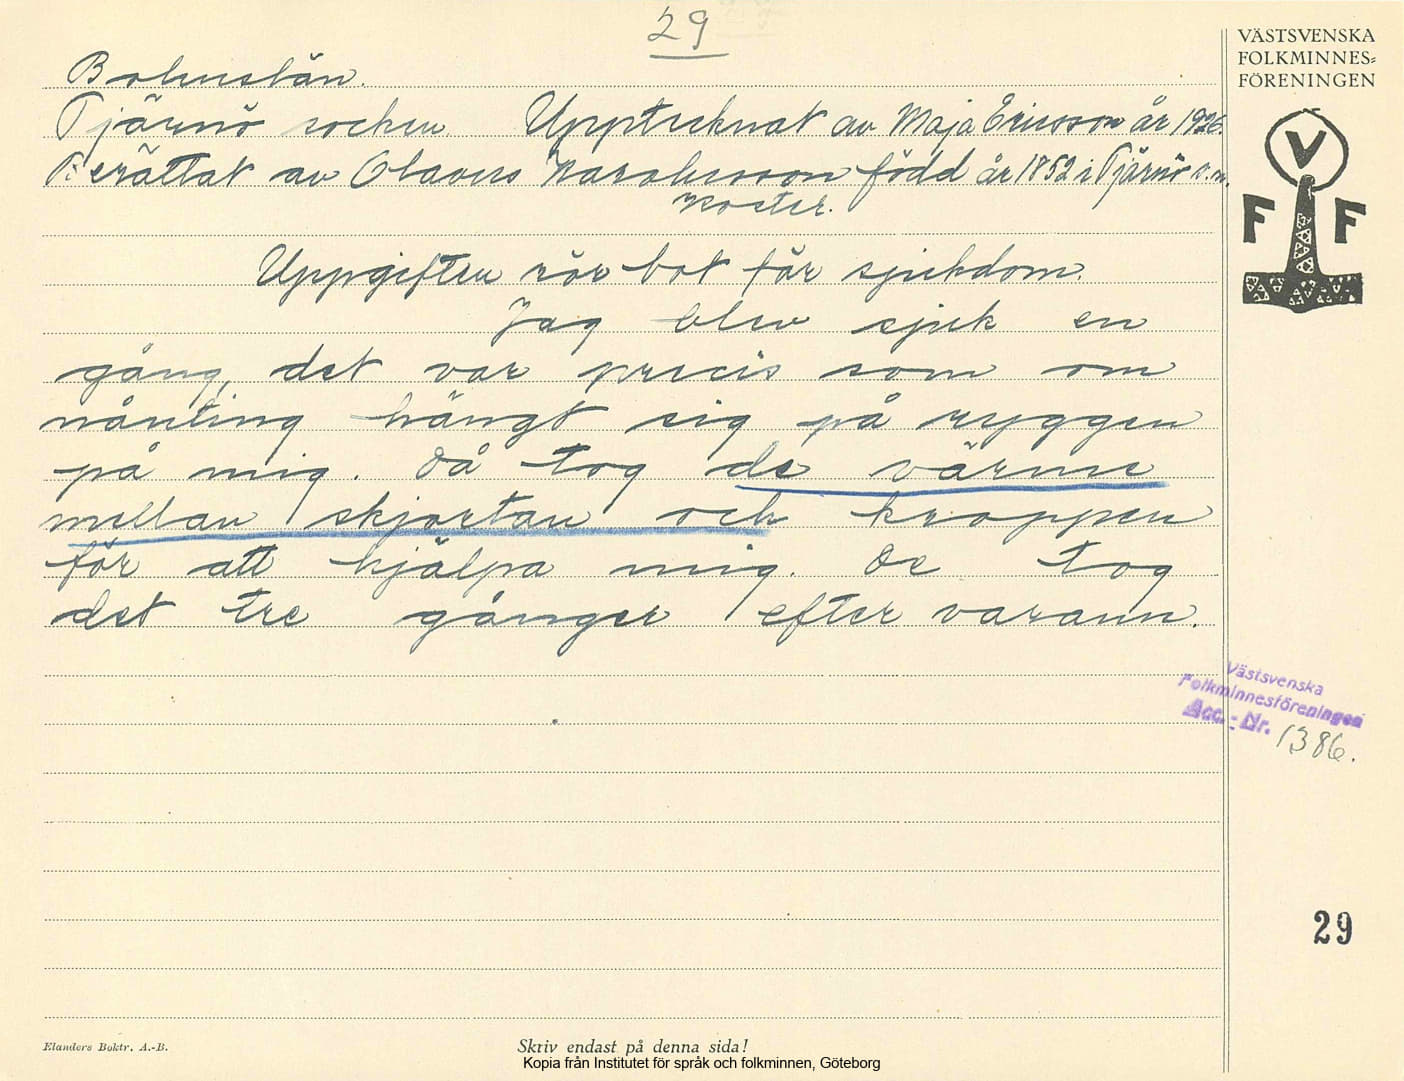 29
Bohuslän.
Tjärnö socken Upptecknat av Maja Ericsson år 1926.
Berättat av Olavus Karolusson född år 1852 i Tjärnö s.n.
Koster.
Uppgiften rör bot för sjukdom.
Jag blev sjuk en
gång, det var precis som om
nånting hängt sig på ryggen
på mig. Då tog de värme
mellan skjortan och kroppen
för att hjälpa mig. De tog
det tre gånger efter varann.
VÄSTSVENSKA
FOLKMINNES=
FÖRENINGEN
V
F F
Västsvenska
Folkminnesföreningen
Acc. - Nr. 1386.
29
Elanders Boktr. A.-B.
Skriv endast på denna sida!
Kopia från Institutet för språk och folkminnen, Göteborg